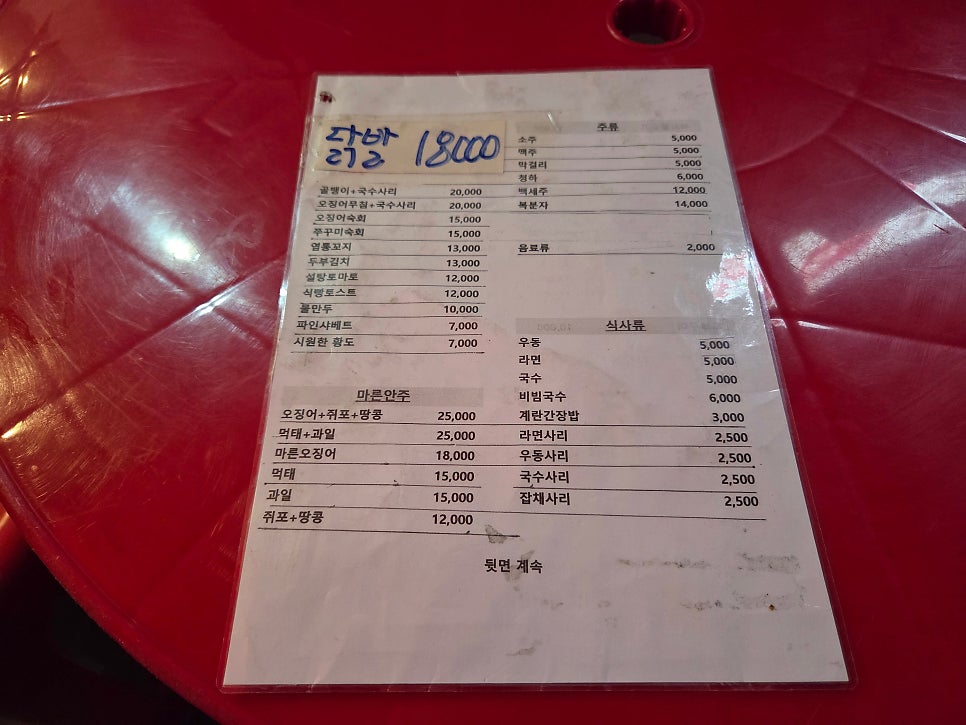 닭발 18000
골뱅이+국수사리 20,000
오징어무침+국수사리 20,000
오징어숙회 15,000
쭈꾸미숙회 15,000
염통꼬지 13,000
두부김치 13,000
설탕토마토 12,000
식빵토스트 12,000
물만두 10,000
파인샤베트 7,000
시원한 황도 7,000
마른안주
오징어+쥐포+땅콩 25,000
먹태+과일 25,000
마른오징어 18,000
먹태 15,000
과일 15,000
쥐포+땅콩 12,000
주류
소주 5,000
맥주 5,000
막걸리 5,000
청하 6,000
백세주 12,000
복분자 14,000
음료류 2,000
식사류
우동 5,000
라면 5,000
국수 5,000
비빔국수 6,000
계란간장밥 3,000
라면사리 2,500
우동사리 2,500
국수사리 2,500
잡채사리 2,500
뒷면 계속